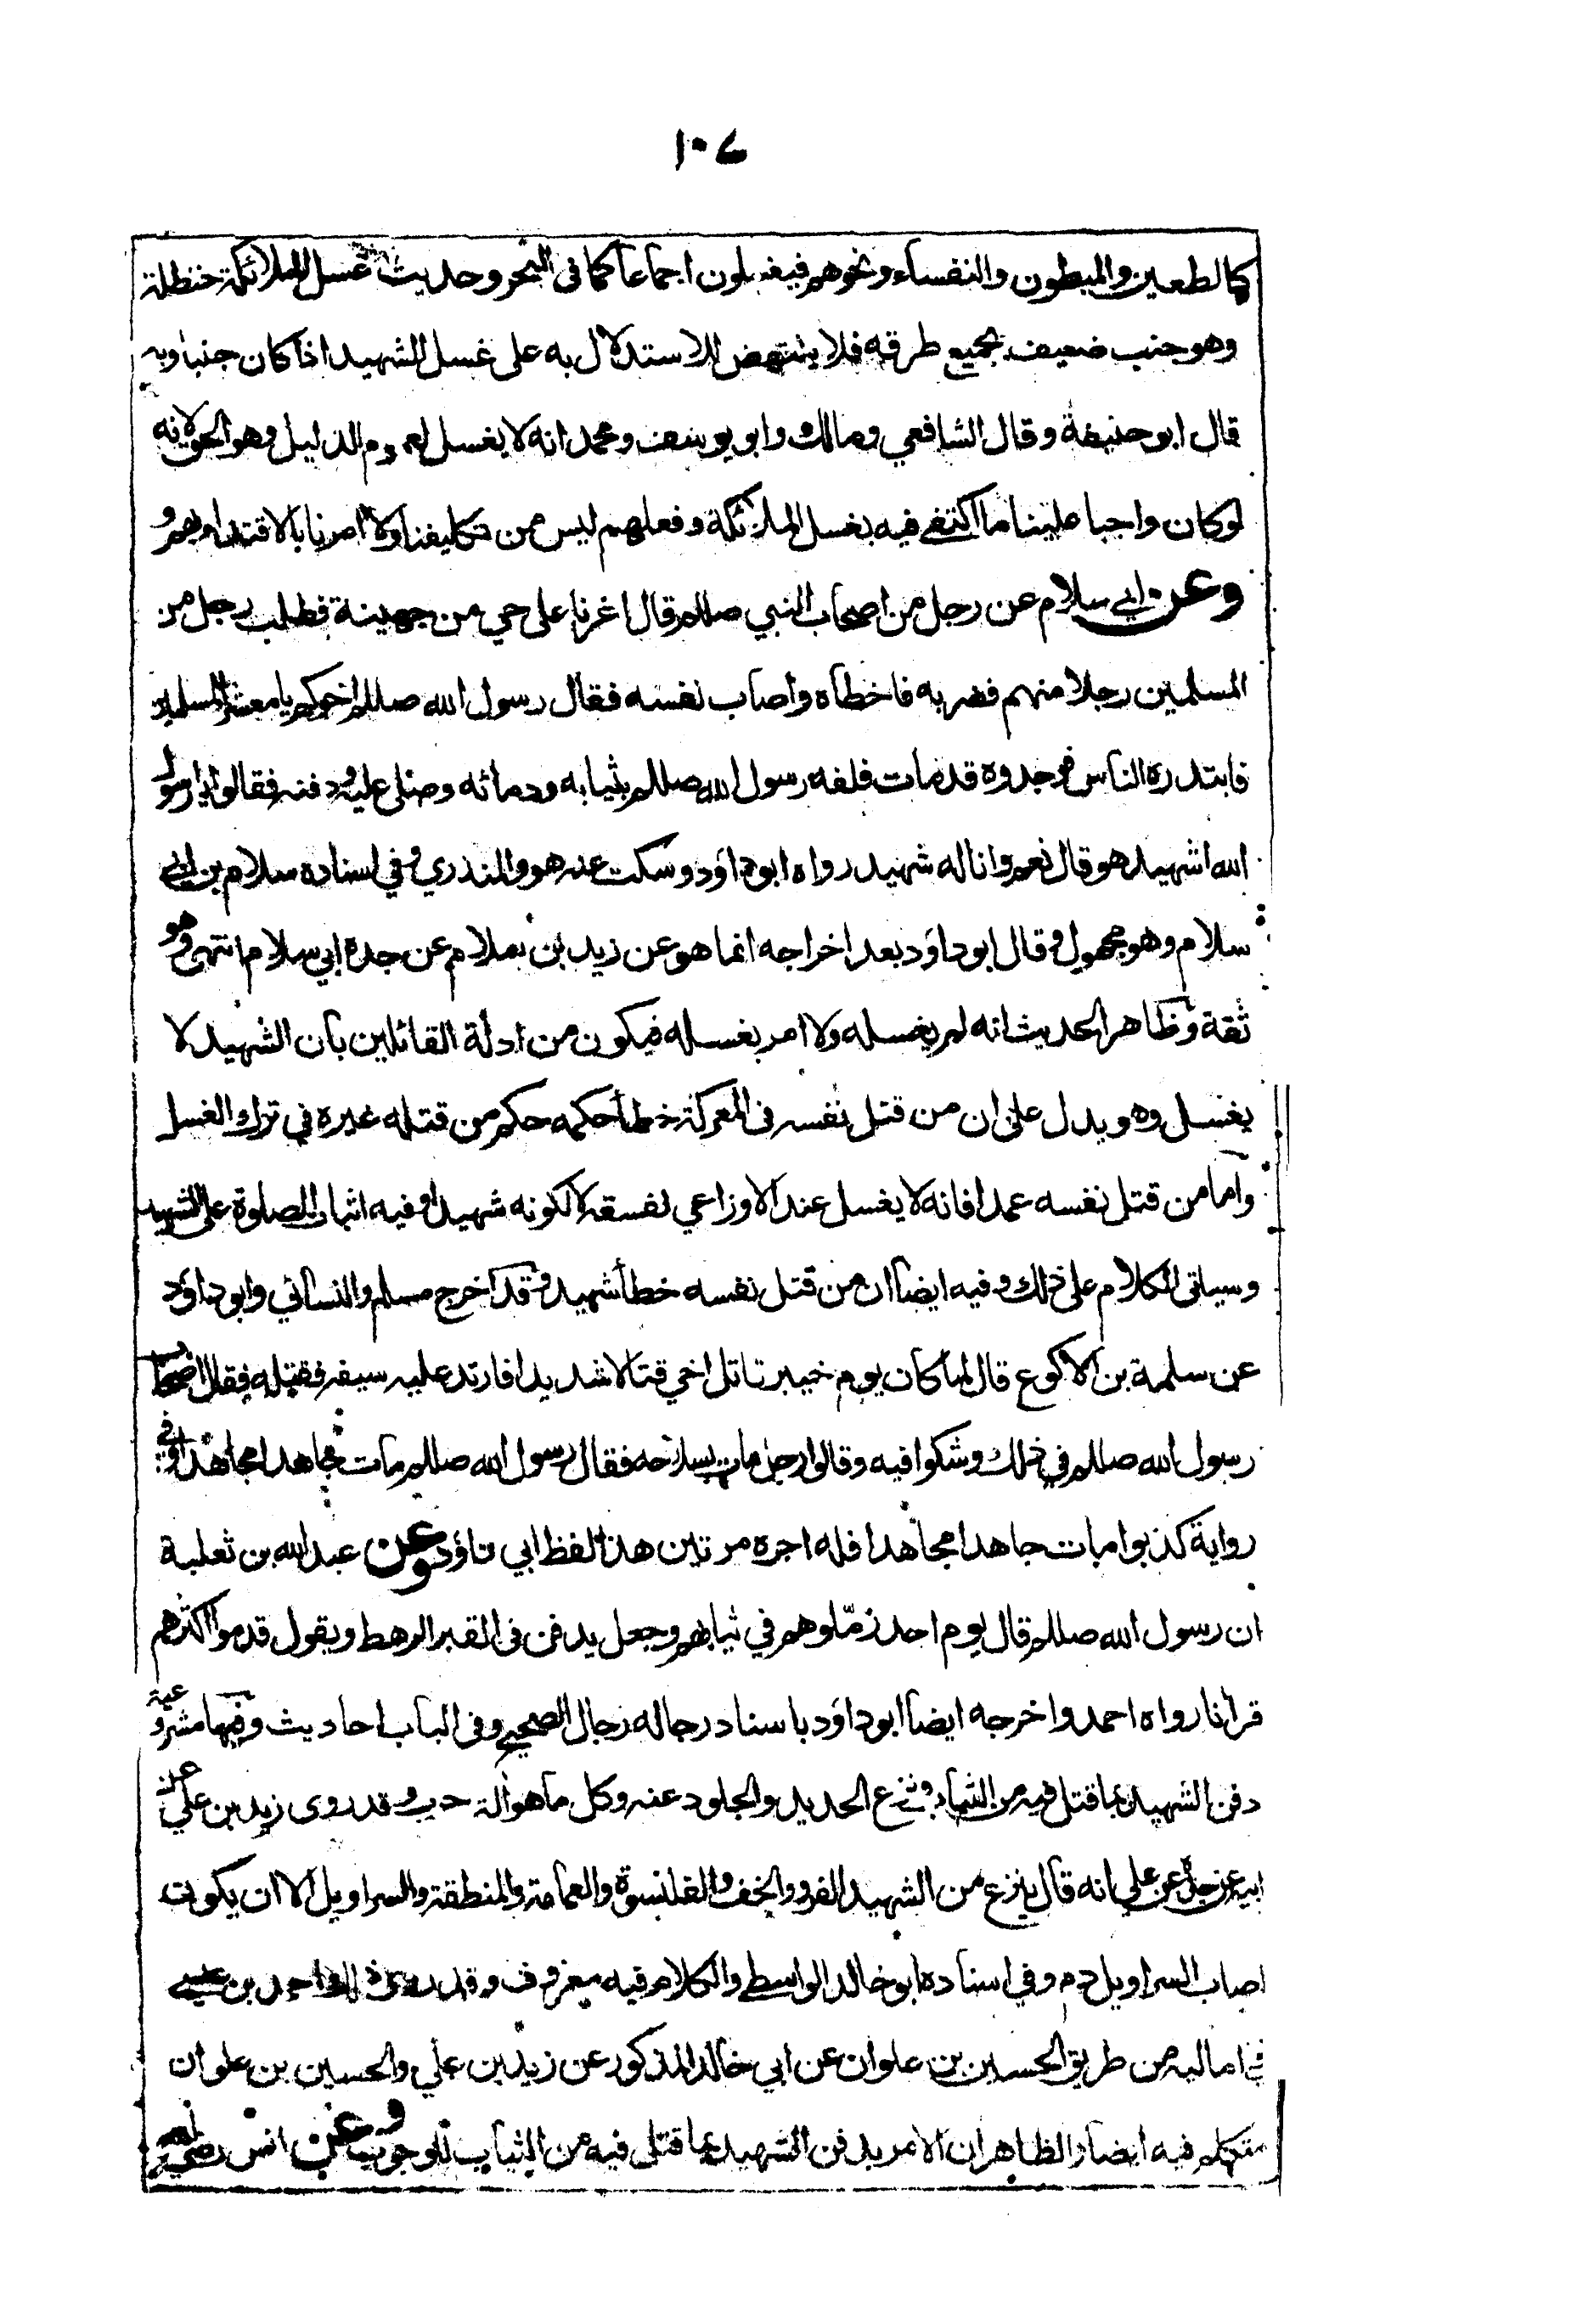 ١٠٧
كالطعين والمبطون والنفساء ونحوهم فيغسلون اجماعا كما فى البحر وحديث غسل الملائكة حنظلة
وهو جنب ضعيف بجميع طرقه فلا ينتهض للاستدلال به على غسل الشهيد اذا كان جنبا وبه
قال ابو حنيفة وقال الشافعي ومالك وابو يوسف ومحمد انه لا يغسل لعموم الدليل وهو الحق لانه
لو كان واجبا علينا ما اكتفي فيه بغسل الملائكة وفعلهم ليس من تكليفنا ولا امرنا بالاقتداء بهم
وعن ابي سلام عن رجل من اصحاب النبي صللم قال اغرنا على حي من جهينة فطلب رجل من
المسلمين رجلا منهم فضربه فاخطاه واصاب نفسه فقال رسول الله صللم اخوكم يا معشر المسلمين
فابتدره الناس فوجدوه قد مات فلفه رسول الله صللم بثيابه ودمائه وصلى عليه ودفنه فقالوا يا رسول
الله اشهيد هو قال نعم وانا له شهيد رواه ابو داود وسكت عنه هو والمنذري وفي اسناده سلام بن ابي
سلام وهو مجهول وقال ابو داود بعد اخراجه انما هو عن زيد بن سلام عن جده ابي سلام انتهى وهو
ثقة وظاهر الحديث انه لم يغسله ولا امر بغسله فيكون من ادلة القائلين بان الشهيد لا
يغسل وهو يدل على ان من قتل نفسه فى المعركة خطأ حكمه حكم من قتله غيره في ترك الغسل
واما من قتل نفسه عمدا فانه لا يغسل عند الاوزاعي لفسقه لا لكونه شهيدا وفيه اثبات الصلوة على الشهيد
وسياتى الكلام على ذلك وفيه ايضا ان من قتل نفسه خطأ شهيد وقد اخرج مسلم والنسائي وابو داود
عن سلمة بن الاكوع قال لما كان يوم خيبر قاتل اخي قتالا شديدا فارتد عليه سيفه فقتله فقال اصحاب
رسول الله صللم في ذلك وشكوا فيه وقالوا رجل مات بسلاحه فقال رسول الله صللم مات جاهدا مجاهدا وفي
رواية كذبوا مات جاهدا مجاهدا فله اجره مرتين هذا لفظ ابي داود وعن عبد الله بن ثعلبة
ان رسول الله صللم قال يوم احد زمّلوهم في ثيابهم وجعل يدفن فى القبر الرهط ويقول قدموا اكثرهم
قرانا رواه احمد واخرجه ايضا ابو داود باسناد رجاله رجال الصحيح وفى الباب احاديث وفيها مشروعية
دفن الشهيد بما قتل فيه من الثياب ونزع الحديد والجلود عنه وكل ما هو آلة حرب وقد روى زيد بن علي عن
ابيه عن جده عن علي انه قال ينزع من الشهيد الفرو والخف والقلنسوة والعمامة والمنطقة والسراويل الا ان يكون
اصاب السراويل دم وفي اسناده ابو خالد الواسطي والكلام فيه معروف وقد روى احمد بن عيسى
في اماليه من طريق الحسين بن علوان عن ابي خالد المذكور عن زيد بن علي والحسين بن علوان
متكلم فيه ايضا والظاهر ان الامر بدفن الشهيد بما قتل فيه من الثياب للوجوب وعن انس رضي الله